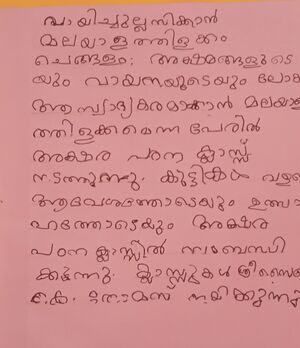 വായിച്ചുല്ലസിക്കാൻ
മലയാളത്തിളക്കം
ചെങ്ങളം: അക്ഷരങ്ങളുടെ
യും വായനയുടെയും ലോക
ആസ്വാദ്യകരമാക്കാൻ മലയാള
ത്തിളക്കമെന്ന പേരിൽ
അക്ഷര പഠന ക്ലാസ്സ്
നടത്തുന്നു. കുട്ടികൾ വളരെ
ആവേശത്തോടെയും ഉത്സാ
ഹത്തോടെയും അക്ഷര
പഠന ക്ലാസ്സിൽ സംബന്ധി
ക്കുന്നു. ക്ലാസ്സുകൾ
കെ. തോമസ് നയിക്കുന്നു